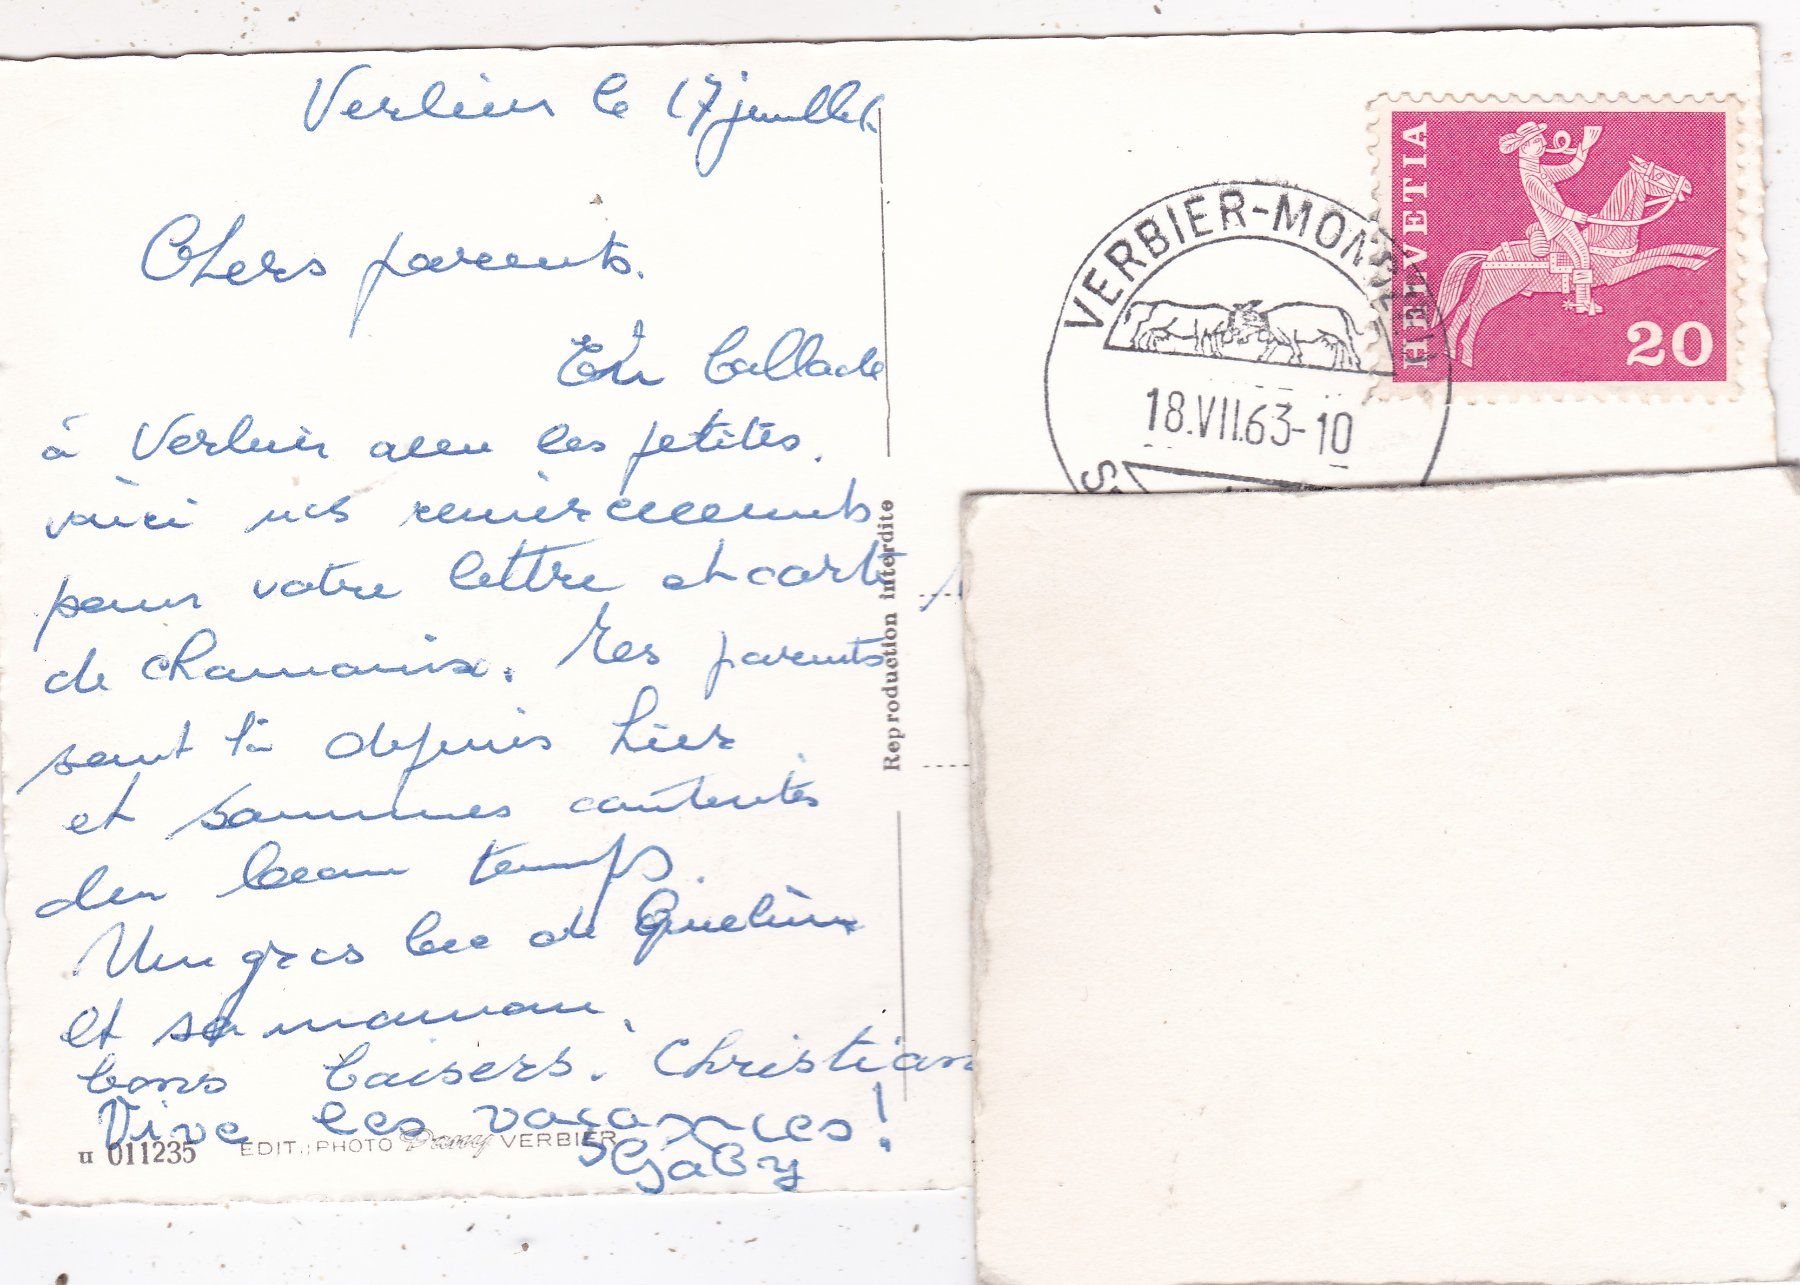 Verbier le 17 juillet
Chers parents.
En ballade
à Verbier avec les petites.
voici nos remerciements
pour votre lettre et carte
de Chamonix. Les parents
sont là depuis hier
et sommes contentes
du beau temps.
Un gros bec de
et sa maman.
bons baisers. Christian
Vive les vacances!
Gaby
u 011235 EDIT.: PHOTO Dany VERBIER
Reproduction interdite
VERBIER-MONT
18.VII.63-10
HELVETIA
20